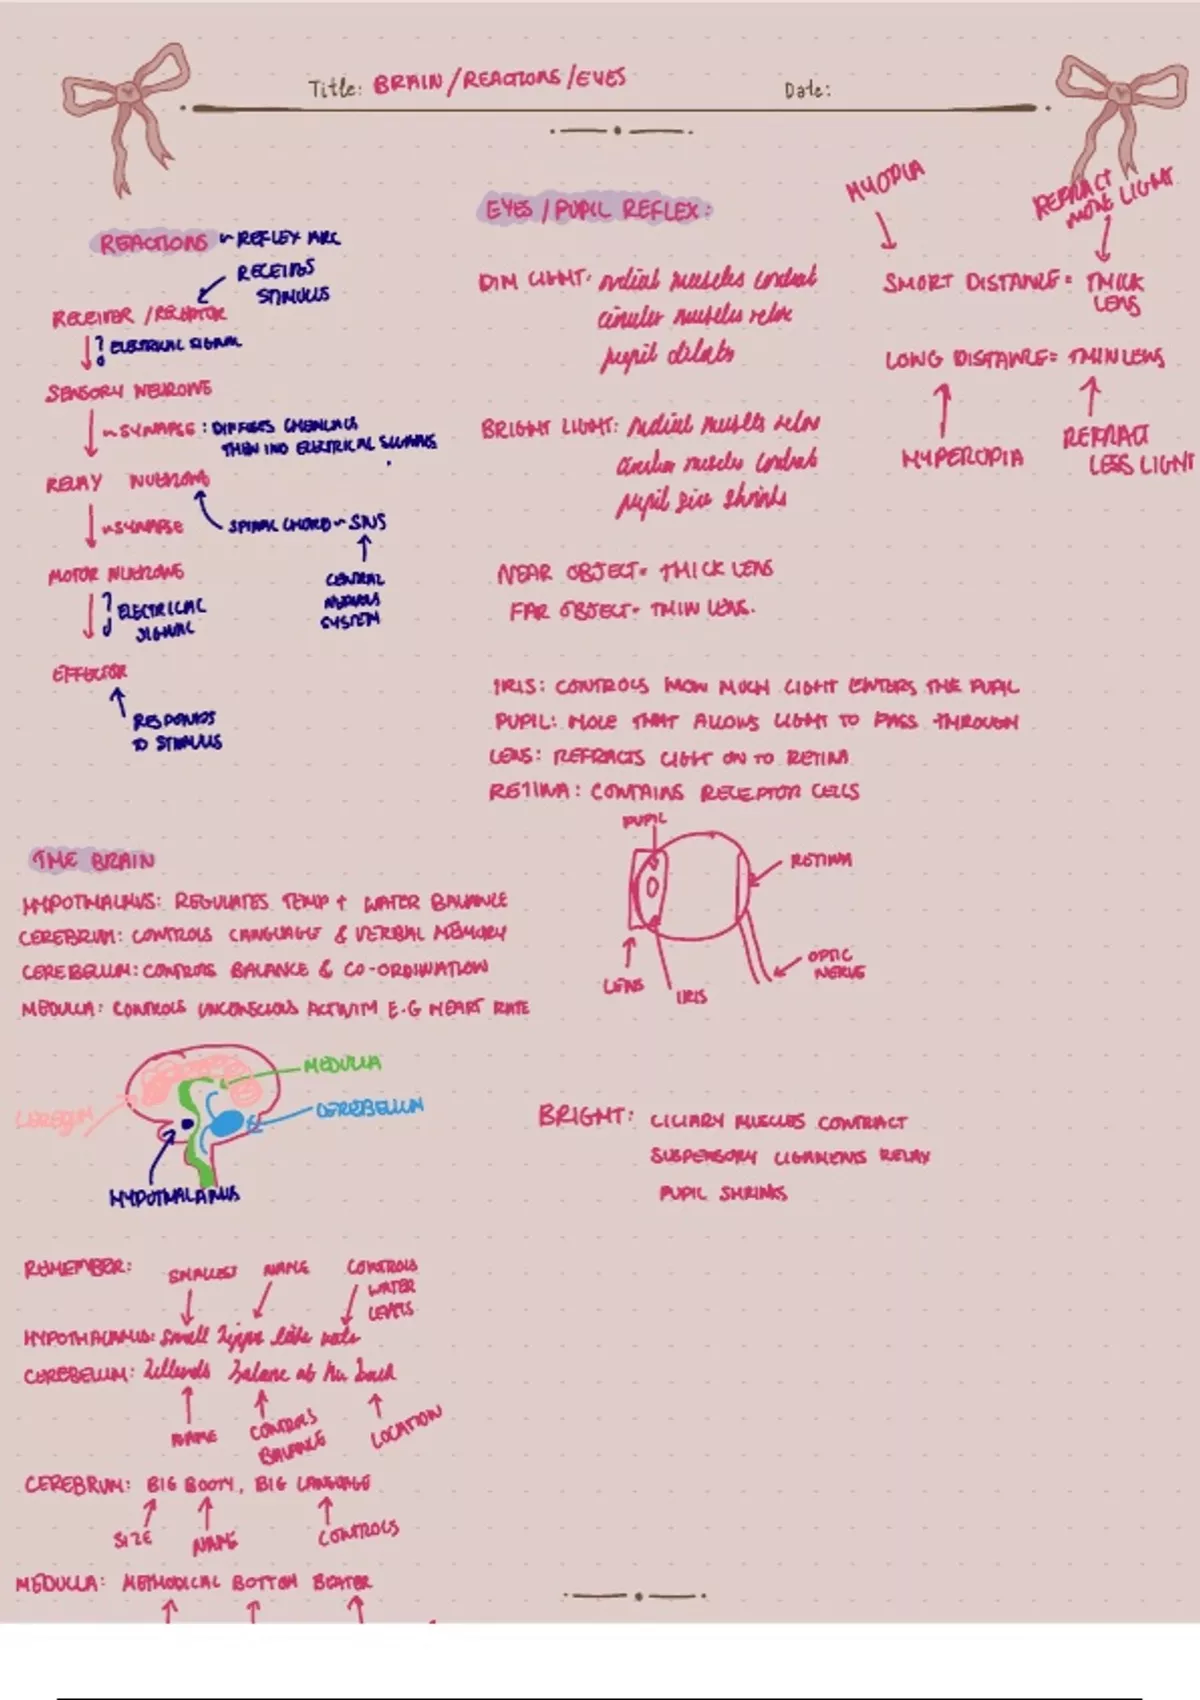 Title: BRAIN/REACTIONS/EYES
Date:
REACTIONS ~ REFLEX ARC
RECEIVES
STIMULUS
RECEIVER/RECEPTOR
ELECTRICAL SIGNAL
SENSORY NEURONE
~SYNAPSE: DIFFUSES CHEMICALS
THEN INO ELECTRICAL SIGNALS
RELAY NUERONE
~SYNAPSE
SPINAL CHORD ~ SNS
MOTOR NUERONE
CENTRAL
NERVOUS
SYSTEM
ELECTRICAL
SIGNAL
EFFECTOR
RESPONDS
TO STIMULUS
THE BRAIN
HYPOTHALAMUS: REGULATES TEMP + WATER BALANCE
CEREBRUM: CONTROLS LANGUAGE & VERBAL MEMORY
CEREBELLUM: CONTROLS BALANCE & CO-ORDINATION
MEDULLA: CONTROLS UNCONSCIOUS ACTIVITY E.G HEART RATE
MEDULLA
CEREBELLUM
HYPOTHALAMUS
REMEMBER:
SMALLEST
NAME
CONTROLS
WATER
LEVELS
HYPOTHALAMUS: small hippo likes
CEREBELLUM: balance at the back
NAME
CONTROLS
BALANCE
LOCATION
CEREBRUM: BIG BOOTY, BIG LANGUAGE
SIZE
NAME
CONTROLS
MEDULLA: METHODICAL BOTTOM BEATER
EYES/PUPIL REFLEX:
DIM LIGHT: radial muscles contract
circular muscles relax
pupil dilates
BRIGHT LIGHT: radial muscles relax
circular muscles contract
pupil size shrinks
NEAR OBJECT = THICK LENS
FAR OBJECT = THIN LENS.
IRIS: CONTROLS HOW MUCH LIGHT ENTERS THE PUPIL
PUPIL: HOLE THAT ALLOWS LIGHT TO PASS THROUGH
LENS: REFRACTS LIGHT ON TO RETINA
RETINA: CONTAINS RECEPTOR CELLS
PUPIL
RETINA
OPTIC
NERVE
LENS
IRIS
BRIGHT: CILIARY MUSCLES CONTRACT
SUSPENSORY LIGAMENTS RELAX
PUPIL SHRINKS
MYOPIA
REFRACT
MORE LIGHT
SHORT DISTANCE = THICK
LENS
LONG DISTANCE = THIN LENS
HYPEROPIA
REFRACT
LESS LIGHT